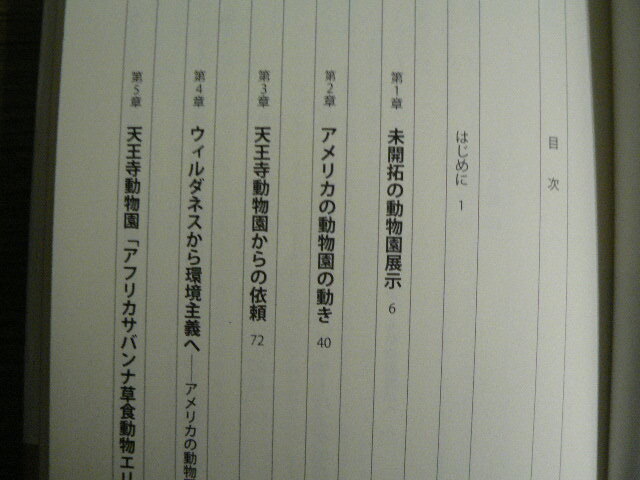 目次
はじめに 1
第1章 未開拓の動物園展示 6
第2章 アメリカの動物園の動き 40
第3章 天王寺動物園からの依頼 72
第4章 ウィルダネスから環境主義へ――アメリカの動物
第5章 天王寺動物園「アフリカサバンナ草食動物エリ